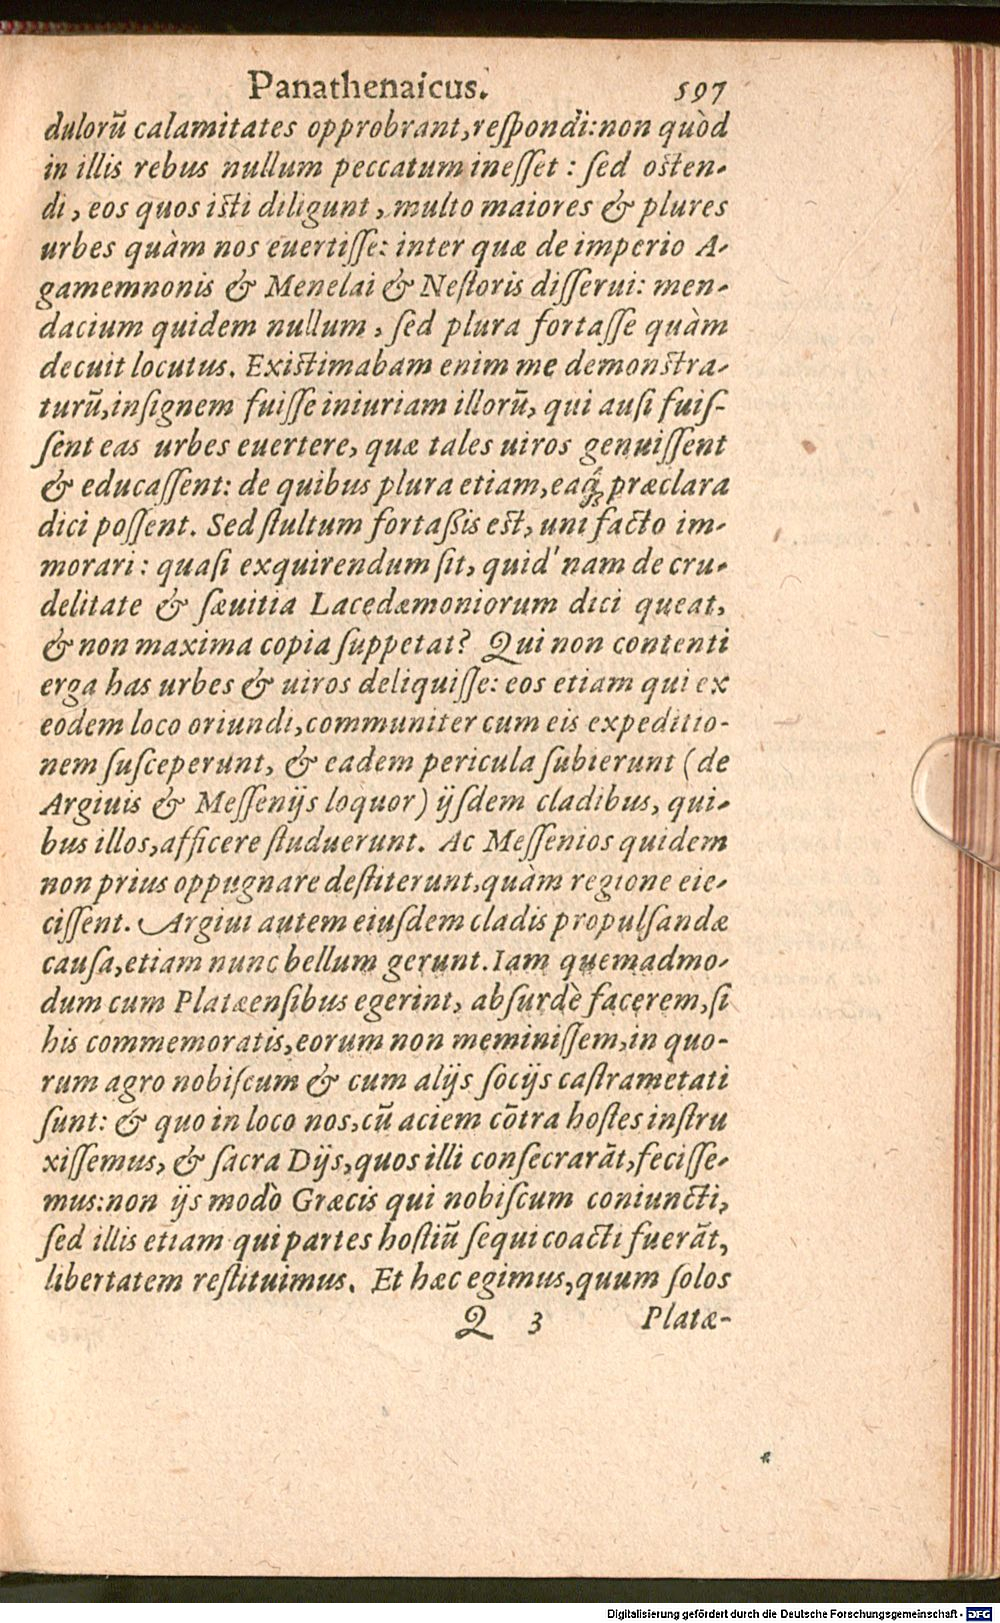 Panathenaicus. 597
dulorũ calamitates opprobrant, reſpondi: non quòd
in illis rebus nullum peccatum ineſſet : ſed oſten-
di, eos quos iſti diligunt, multo maiores & plures
urbes quàm nos euertiſſe: inter quæ de imperio A-
gamemnonis & Menelai & Neſtoris diſſerui: men-
dacium quidem nullum, ſed plura fortaſſe quàm
decuit locutus. Exiſtimabam enim me demonſtra-
turũ, inſignem fuiſſe iniuriam illorũ, qui auſi fuiſ-
ſent eas urbes euertere, quæ tales uiros genuiſſent
& educaſſent: de quibus plura etiam, eaq́ꝫ præclara
dici poſſent. Sed ſtultum fortaßis eſt, uni facto im-
morari: quaſi exquirendum ſit, quid'nam de cru-
delitate & ſæuitia Lacedæmoniorum dici queat,
& non maxima copia ſuppetat? Qui non contenti
erga has urbes & uiros deliquiſſe: eos etiam qui ex
eodem loco oriundi, communiter cum eis expeditio-
nem ſuſceperunt, & eadem pericula ſubierunt (de
Argiuis & Meſſenijs loquor) ijſdem cladibus, qui-
bus illos, afficere ſtuduerunt. Ac Meſſenios quidem
non prius oppugnare deſtiterunt, quàm regione eie-
ciſſent. Argiui autem eiuſdem cladis propulſandæ
cauſa, etiam nunc bellum gerunt. Iam quemadmo-
dum cum Platæenſibus egerint, abſurdè facerem, ſi
his commemoratis, eorum non meminiſſem, in quo-
rum agro nobiſcum & cum alijs ſocijs caſtrametati
ſunt: & quo in loco nos, cũ aciem cõtra hoſtes inſtru
xiſſemus, & ſacra Dijs, quos illi conſecrarãt, feciſſe-
mus: non ijs modò Græcis qui nobiſcum coniuncti,
ſed illis etiam qui partes hoſtiũ ſequi coacti fuerãt,
libertatem reſtituimus. Et hæc egimus, quum ſolos
Q 3 Platæ-
Digitalisierung gefördert durch die Deutsche Forschungsgemeinschaft - DFG